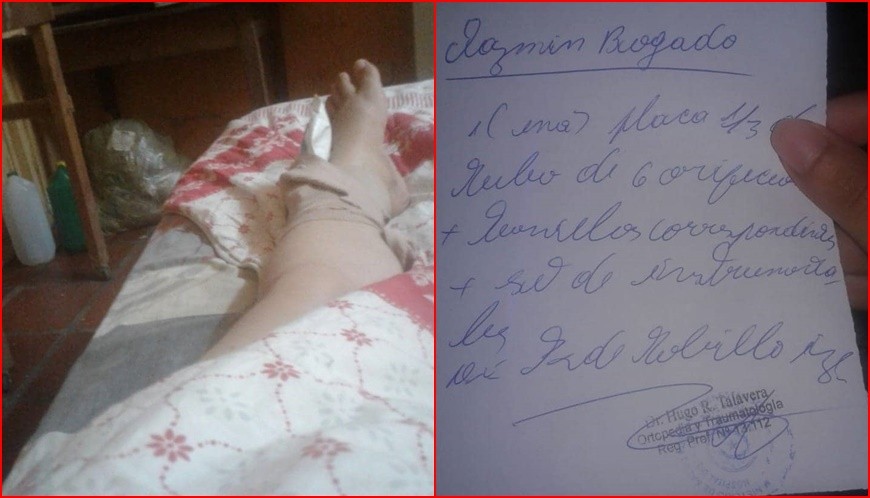 Jazmin Brogado
1 (una) placa 1/3 de
tubo de 6 orificios
+ tornillos correspondientes
+ set de instrumenta
les
Dx: Fx de tobillo izq
Dr. Hugo R. Talavera
Ortopedia y Traumatología
Reg. Prof. Nº 13.112